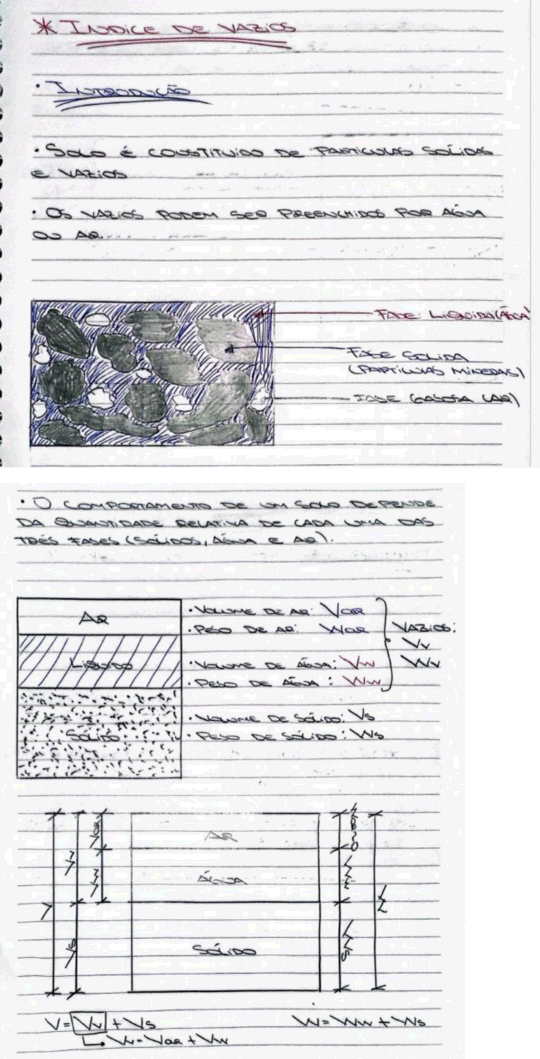 * ÍNDICE DE VAZIOS
• INTRODUÇÃO
• SOLO É CONSTITUIDO DE PARTÍCULAS SÓLIDAS
E VAZIOS
• OS VAZIOS PODEM SER PREENCHIDOS POR ÁGUA
OU AR.
FASE LIQUIDA (ÁGUA)
FASE SOLIDA
(PARTÍCULAS MINERAIS)
FASE GASOSA (AR)
• O COMPORTAMENTO DE UM SOLO DEPENDE
DA QUANTIDADE RELATIVA DE CADA UMA DAS
TRÊS FASES (SÓLIDOS, ÁGUA E AR).
AR
LIQUIDO
SÓLIDO
• VOLUME DE AR: VAR
• PESO DE AR: WAR
• VOLUME DE ÁGUA: Vw
• PESO DE ÁGUA: Ww
VAZIOS:
Vv
Wv
• VOLUME DE SÓLIDO: Vs
• PESO DE SÓLIDO: Ws
AR
ÁGUA
SÓLIDO
V
Vv
Vs
VAR
Vw
ZERO
Ww
Ws
W
V = Vv + Vs
Vv = VAR + Vw
W = Ww + Ws